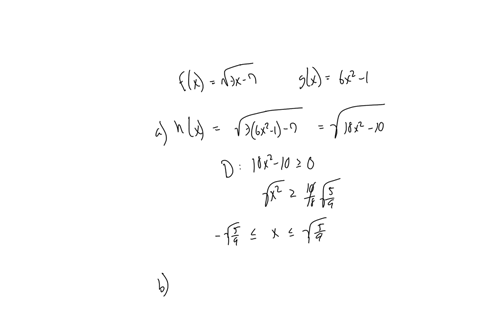 f(x) = √3x-7 g(x) = 6x²-1
a) h(x) = √3(6x²-1)-7 = √18x²-10
D: 18x²-10 ≥ 0
√x² ≥ 10/18 √5/9
-√5/9 ≤ x ≤ √5/9
b)